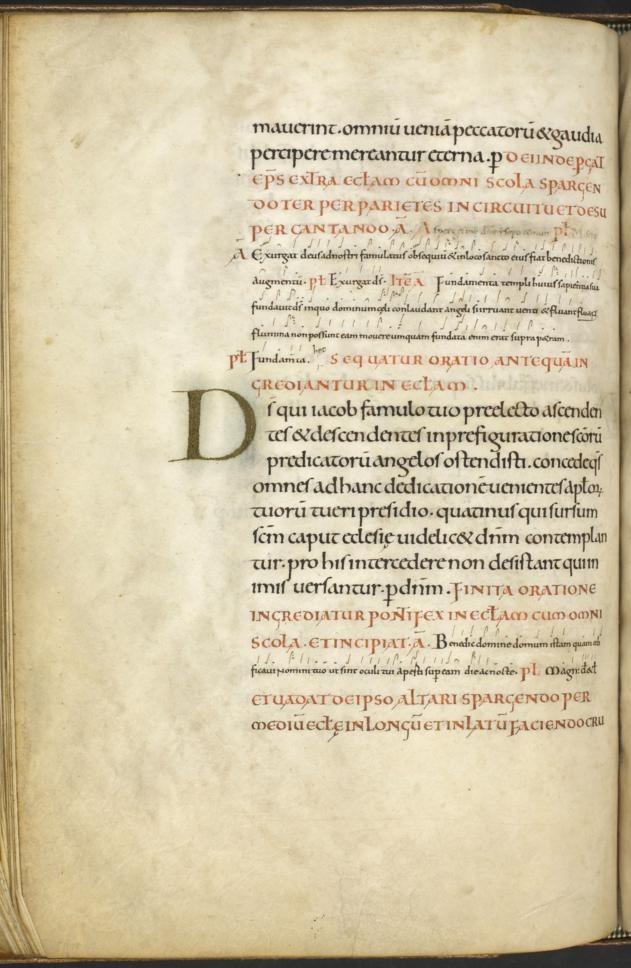 mauerint. omniū ueniā peccatorū & gaudia
percipere mereantur eterna. p̱ DEIINDE ꝑGAT
EP̄S EXTRA ECL̄AM CŪ OMNI SCOLA SPARGEN
DO TER PER PARIETES IN CIRCUITU ET DESU
PER CANTANDO. Ā. A
Ā Exurgat deus adnostri famulatus obsequiū & inloco sancto eius fiat benedictionis
augmentū. pł Exurgat ds̄. ITĒ A Fundamenta templi huius sapientia sua
fundauit ds̄ in quo dominum celi conlaudant angeli si irruant uenti & fluant
flumina non possunt eam mouere umquam fundata enim erat supra petram.
pł Fundam̄ta. SEQUATUR ORATIO ANTEQUĀ IN
GREDIANTUR IN ECL̄AM.
Ds̄ qui iacob famulo tuo preelecto ascenden
tes & descendentes in prefiguratione sc̄orū
predicatorū angelos ostendisti. concede q̄s
omnes ad hanc dedicationē uenientes apłor
tuorū tueri presidio. quatinus qui sursum
sc̄m caput eclesię uidelic& dn̄m contemplan
tur. pro his intercedere non desistant qui in
imis uersantur. p̱ dn̄m. FINITA ORATIONE
INGREDIATUR PONTIFEX IN ECL̄AM CUM OMNI
SCOLA. ET INCIPIAT. Ā. Benedic domine domum istam quam edi
ficaui nomini tuo ut sint oculi tui aperti super eam die ac nocte. pł Magn: ds̄ &
ET UADAT DE IPSO ALTARI SPARGENDO PER
MEDIŪ ECL̄Ę IN LONGŪ ET IN LATŪ FACIENDO CRU